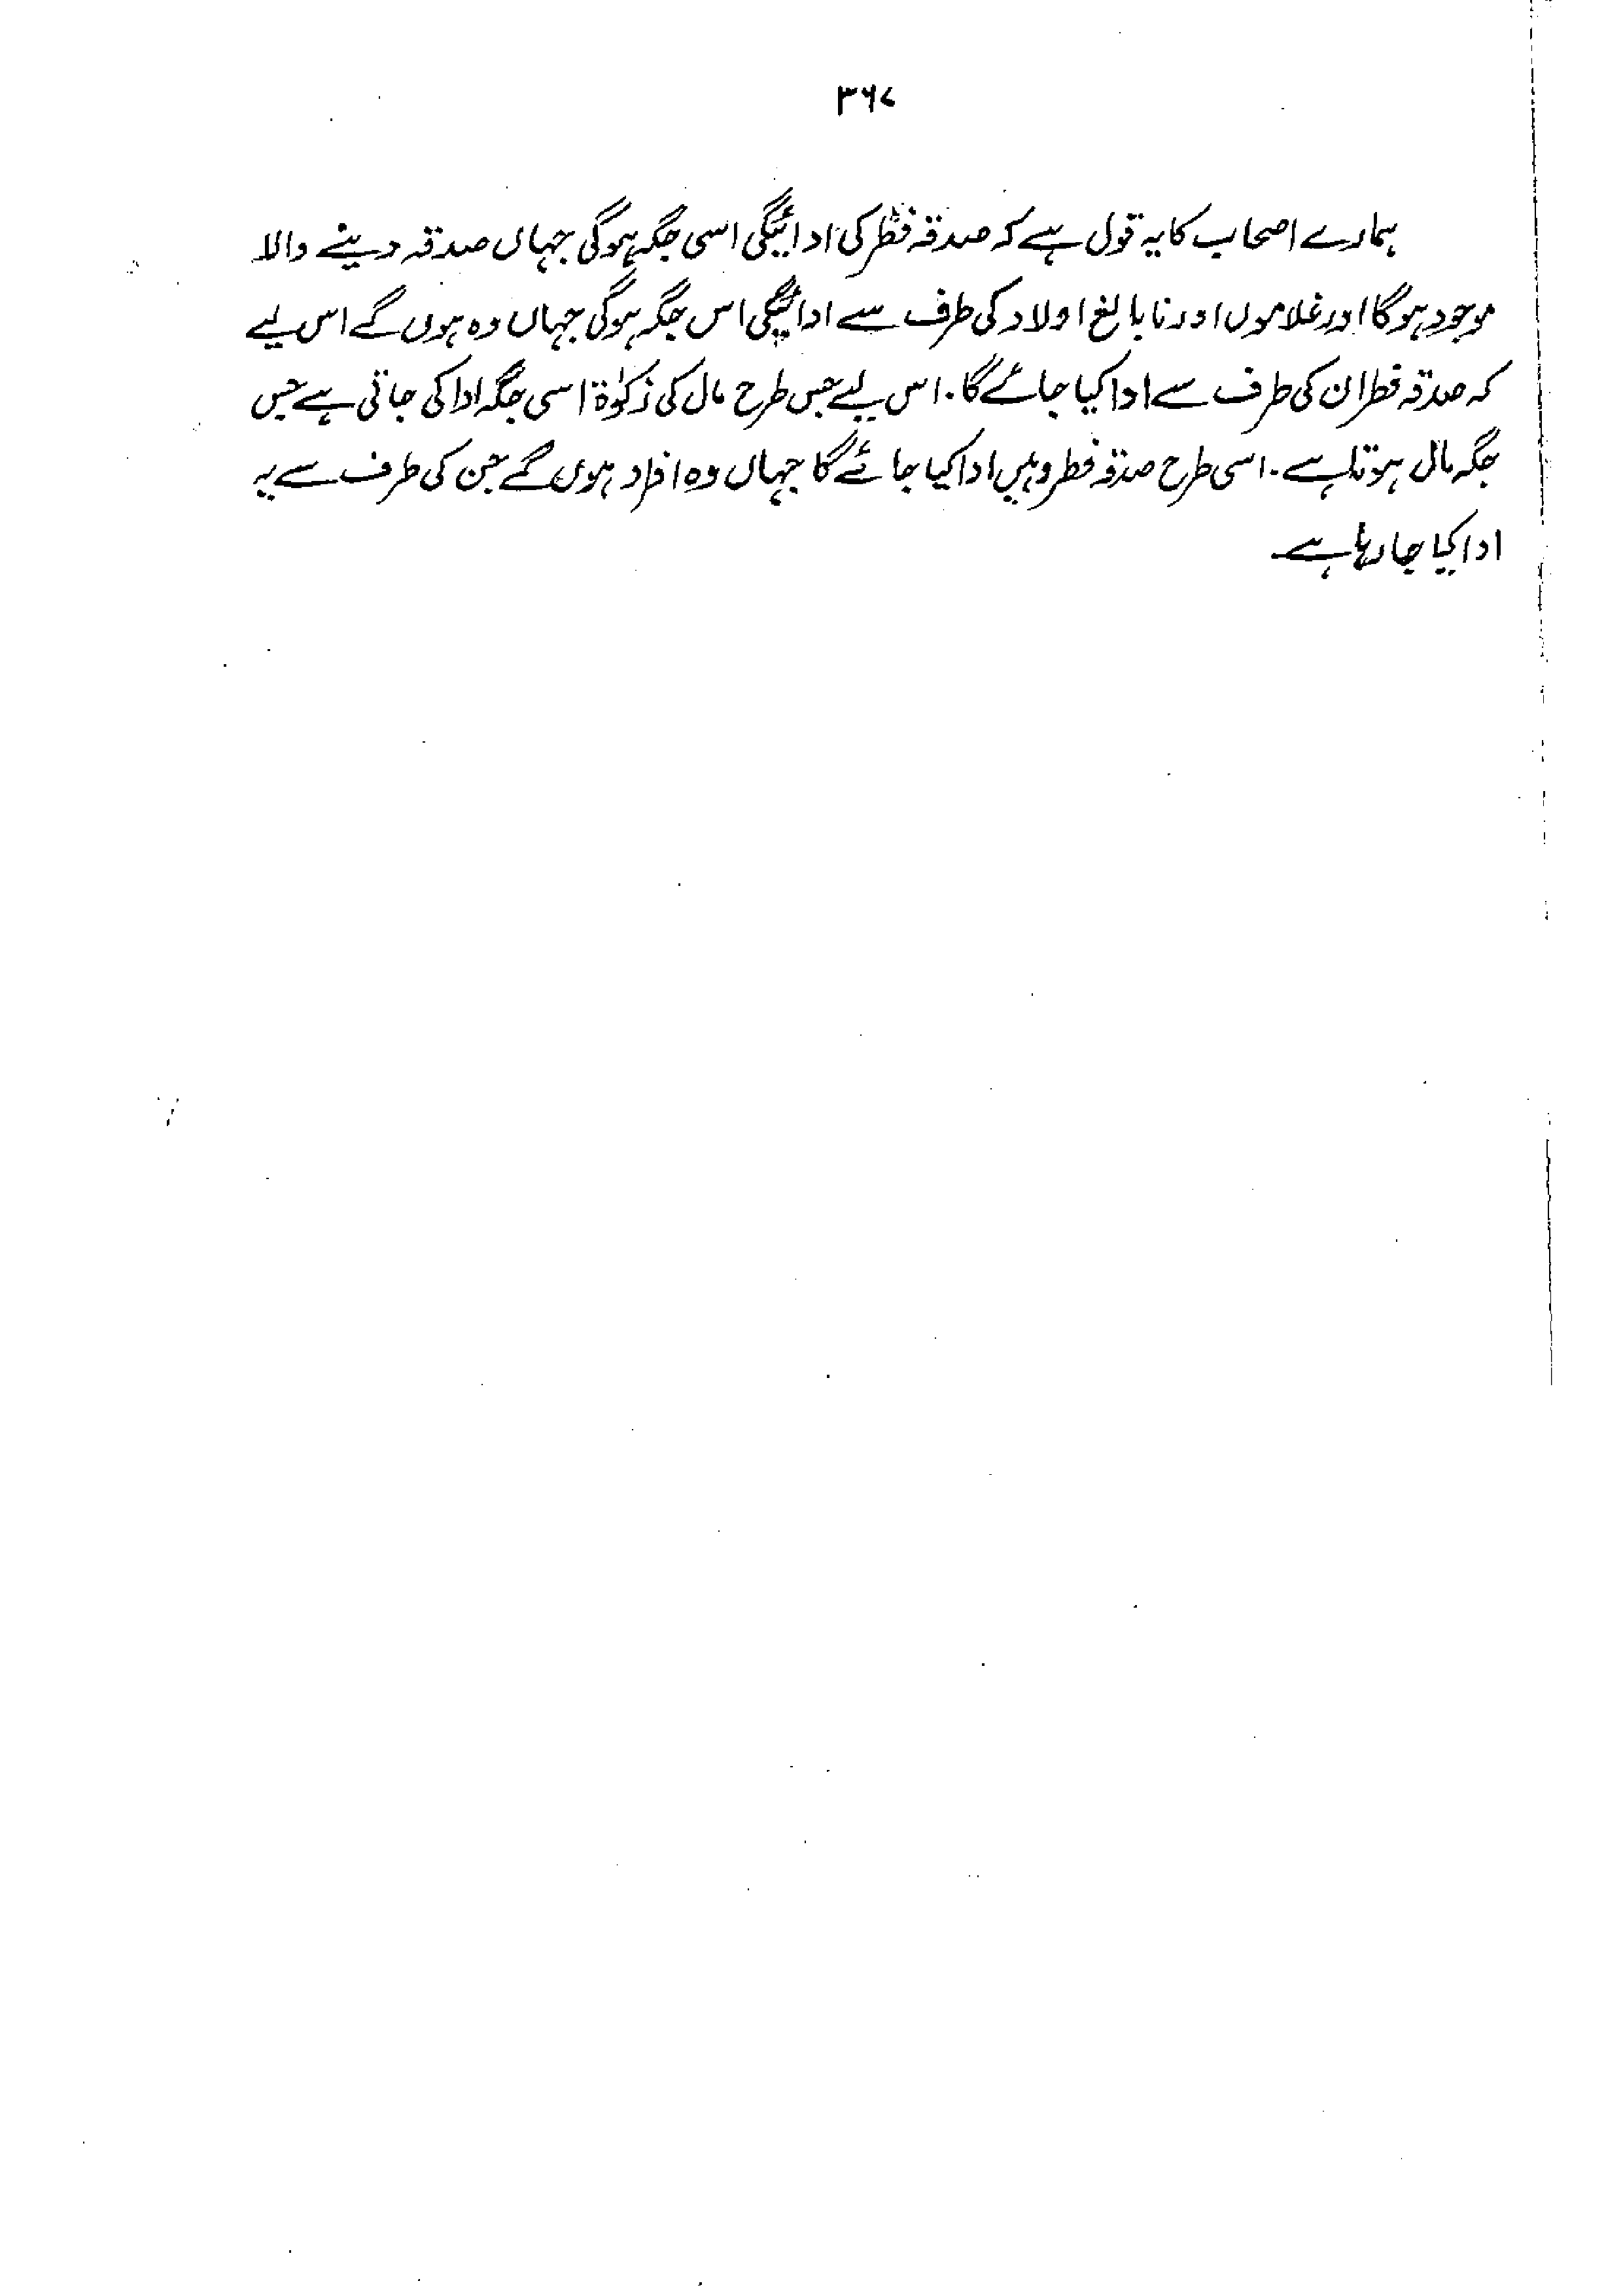 ۳۶۷
ہمارے اصحاب کا یہ قول ہے کہ صدقہ فطر کی ادائیگی اسی جگہ ہوگی جہاں صدقہ دینے والا
موجود ہوگا اور غلاموں اور نابالغ اولاد کی طرف سے ادائیگی اس جگہ ہوگی جہاں وہ ہوں گے اس لیے
کہ صدقہ فطر ان کی طرف سے ادا کیا جائے گا۔ اس لیے جس طرح مال کی زکوٰۃ اسی جگہ ادا کی جاتی ہے جس
جگہ مال ہوتا ہے۔ اسی طرح صدقہ فطر وہیں ادا کیا جائے گا جہاں وہ افراد ہوں گے جن کی طرف سے یہ
ادا کیا جا رہا ہے